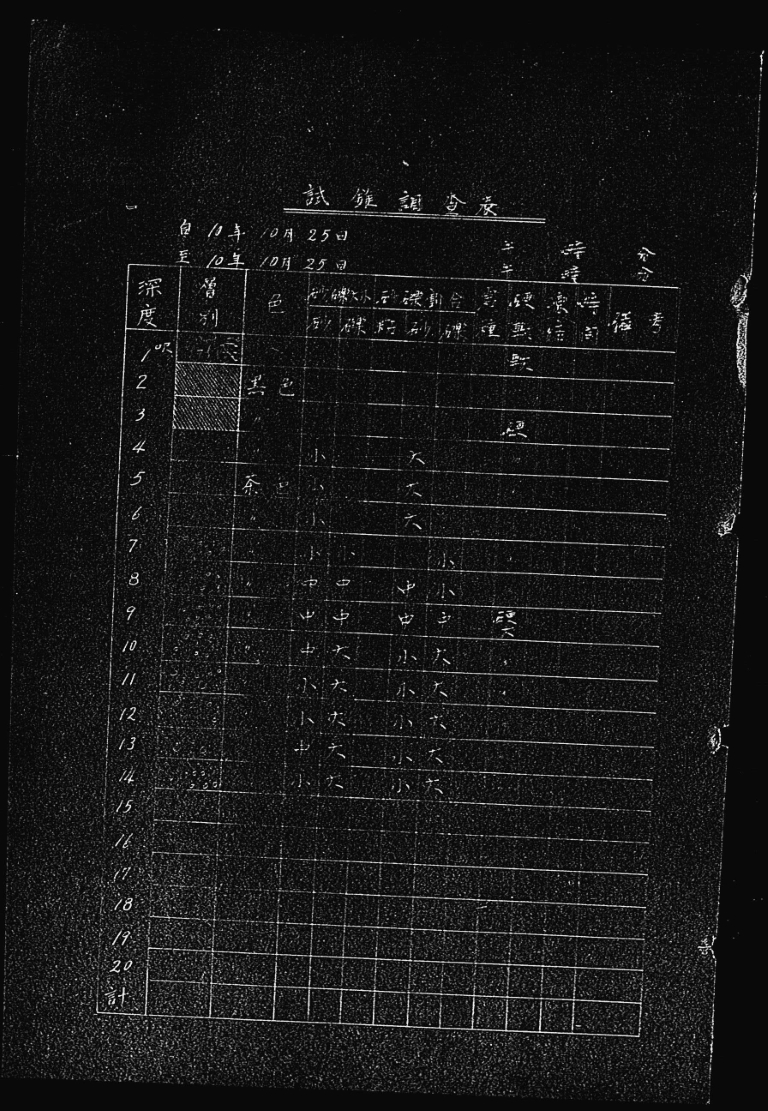 試錐調査表
自 10年 10月 25日 午 時 分
至 10年 10月 25日 午 時 分
深度 層別 色 砂礫大小 砂礫割合 硬軟 時間 備考
砂 礫 粘 砂 礫
1呎 軟
2 黒色
3 〃 硬
4 〃 小 大
5 茶色 小 大
6 〃 小 大
7 〃 小 小 小
8 〃 中 中 中 小
9 〃 中 中 中 中 硬大
10 〃 中 大 小 大 〃
11 小 大 小 大 〃
12 小 大 小 大
13 中 大 小 大
14 小 大 小 大
15
16
17
18
19
20
計